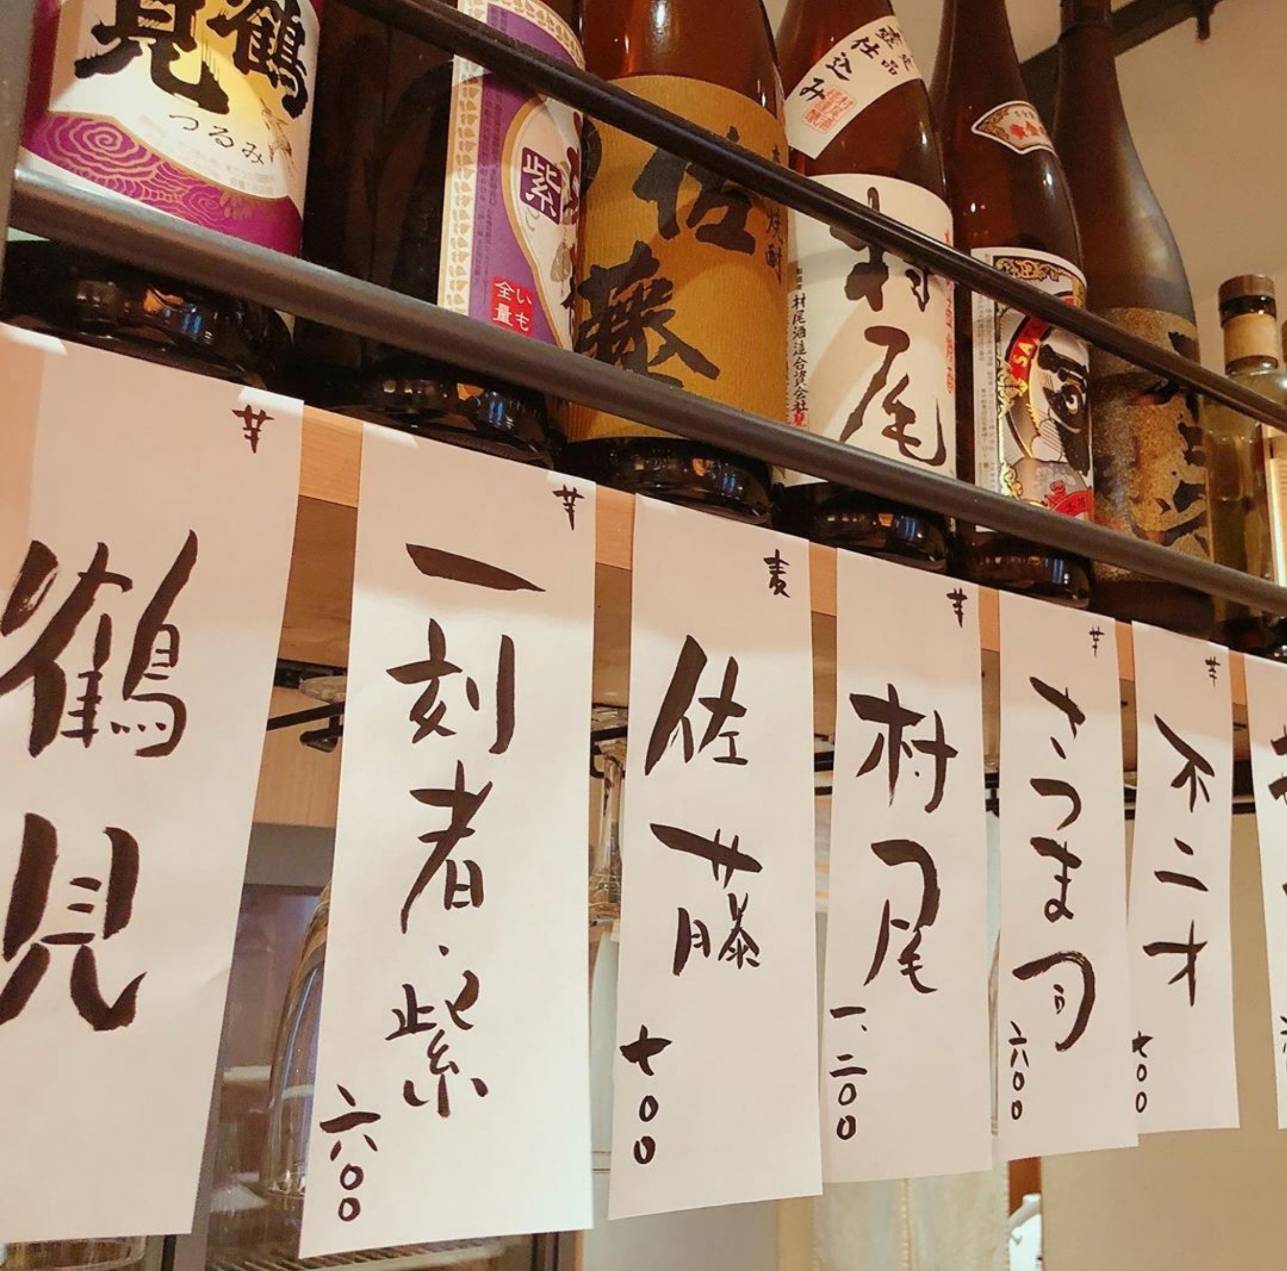 鶴見
つるみ
紫
いも
全量
佐藤
焼酎
甕仕込み
村尾
村尾酒造合資会社
芋
鶴見
芋
一刻者・紫
六〇〇
麦
佐藤
七〇〇
芋
村尾
一、二〇〇
芋
さつま司
六〇〇
芋
不二才
七〇〇